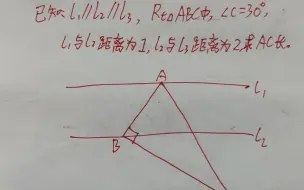 已知: l₁∥l₂∥l₃, Rt△ABC中, ∠C=30°,
l₁与l₂距离为1, l₂与l₃距离为2.求AC长。
A
l₁
B
l₂